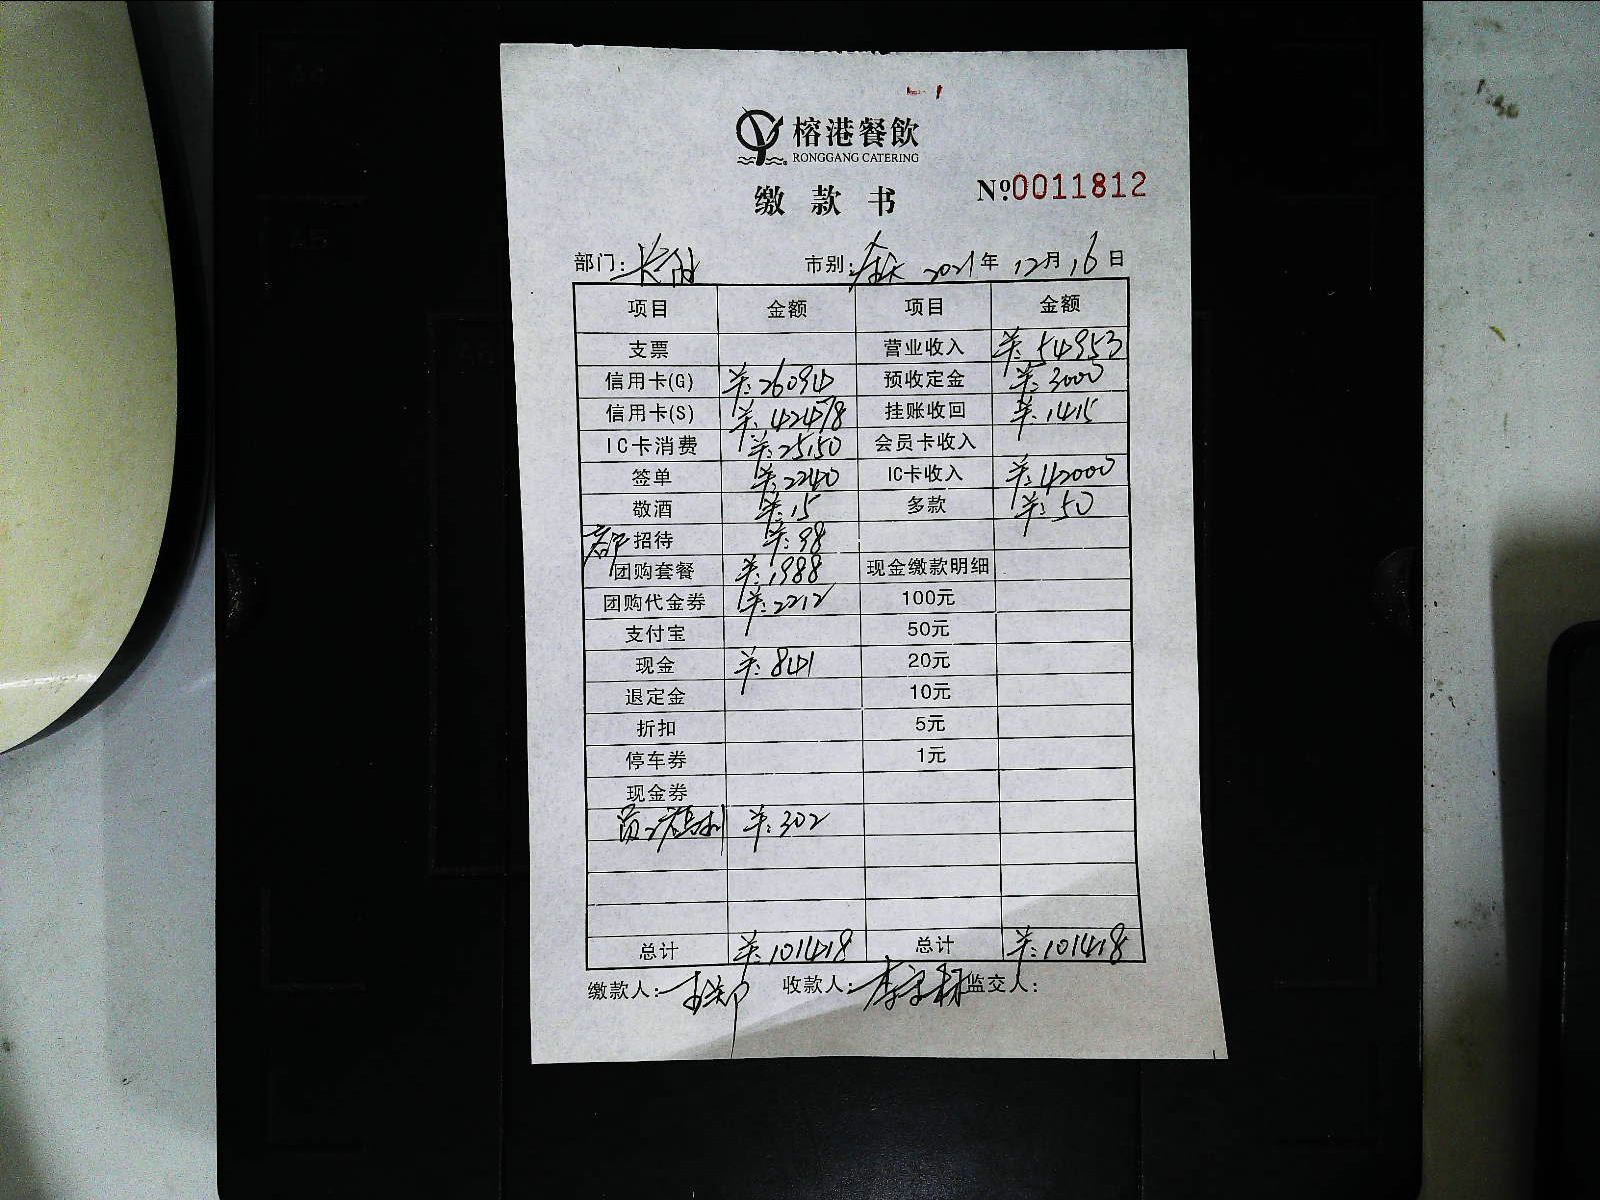 榕港餐飲
RONGGANG CATERING
缴款书 №0011812
部门: 市别:全天 2021年12月16日
项目 金额 项目 金额
支票 营业收入 ¥:54953
信用卡(G) ¥:26094 预收定金 ¥:3000
信用卡(S) ¥:42478 挂账收回 ¥:1415
IC卡消费 ¥:25150 会员卡收入
签单 ¥:2240 IC卡收入 ¥:42000
敬酒 ¥:15 多款 ¥:50
招待 ¥:98
团购套餐 ¥:1988 现金缴款明细
团购代金券 ¥:2212 100元
支付宝 50元
现金 ¥:841 20元
退定金 10元
折扣 5元
停车券 1元
现金券
¥:302
总计 ¥:101418 总计 ¥:101418
缴款人: 收款人: 监交人: